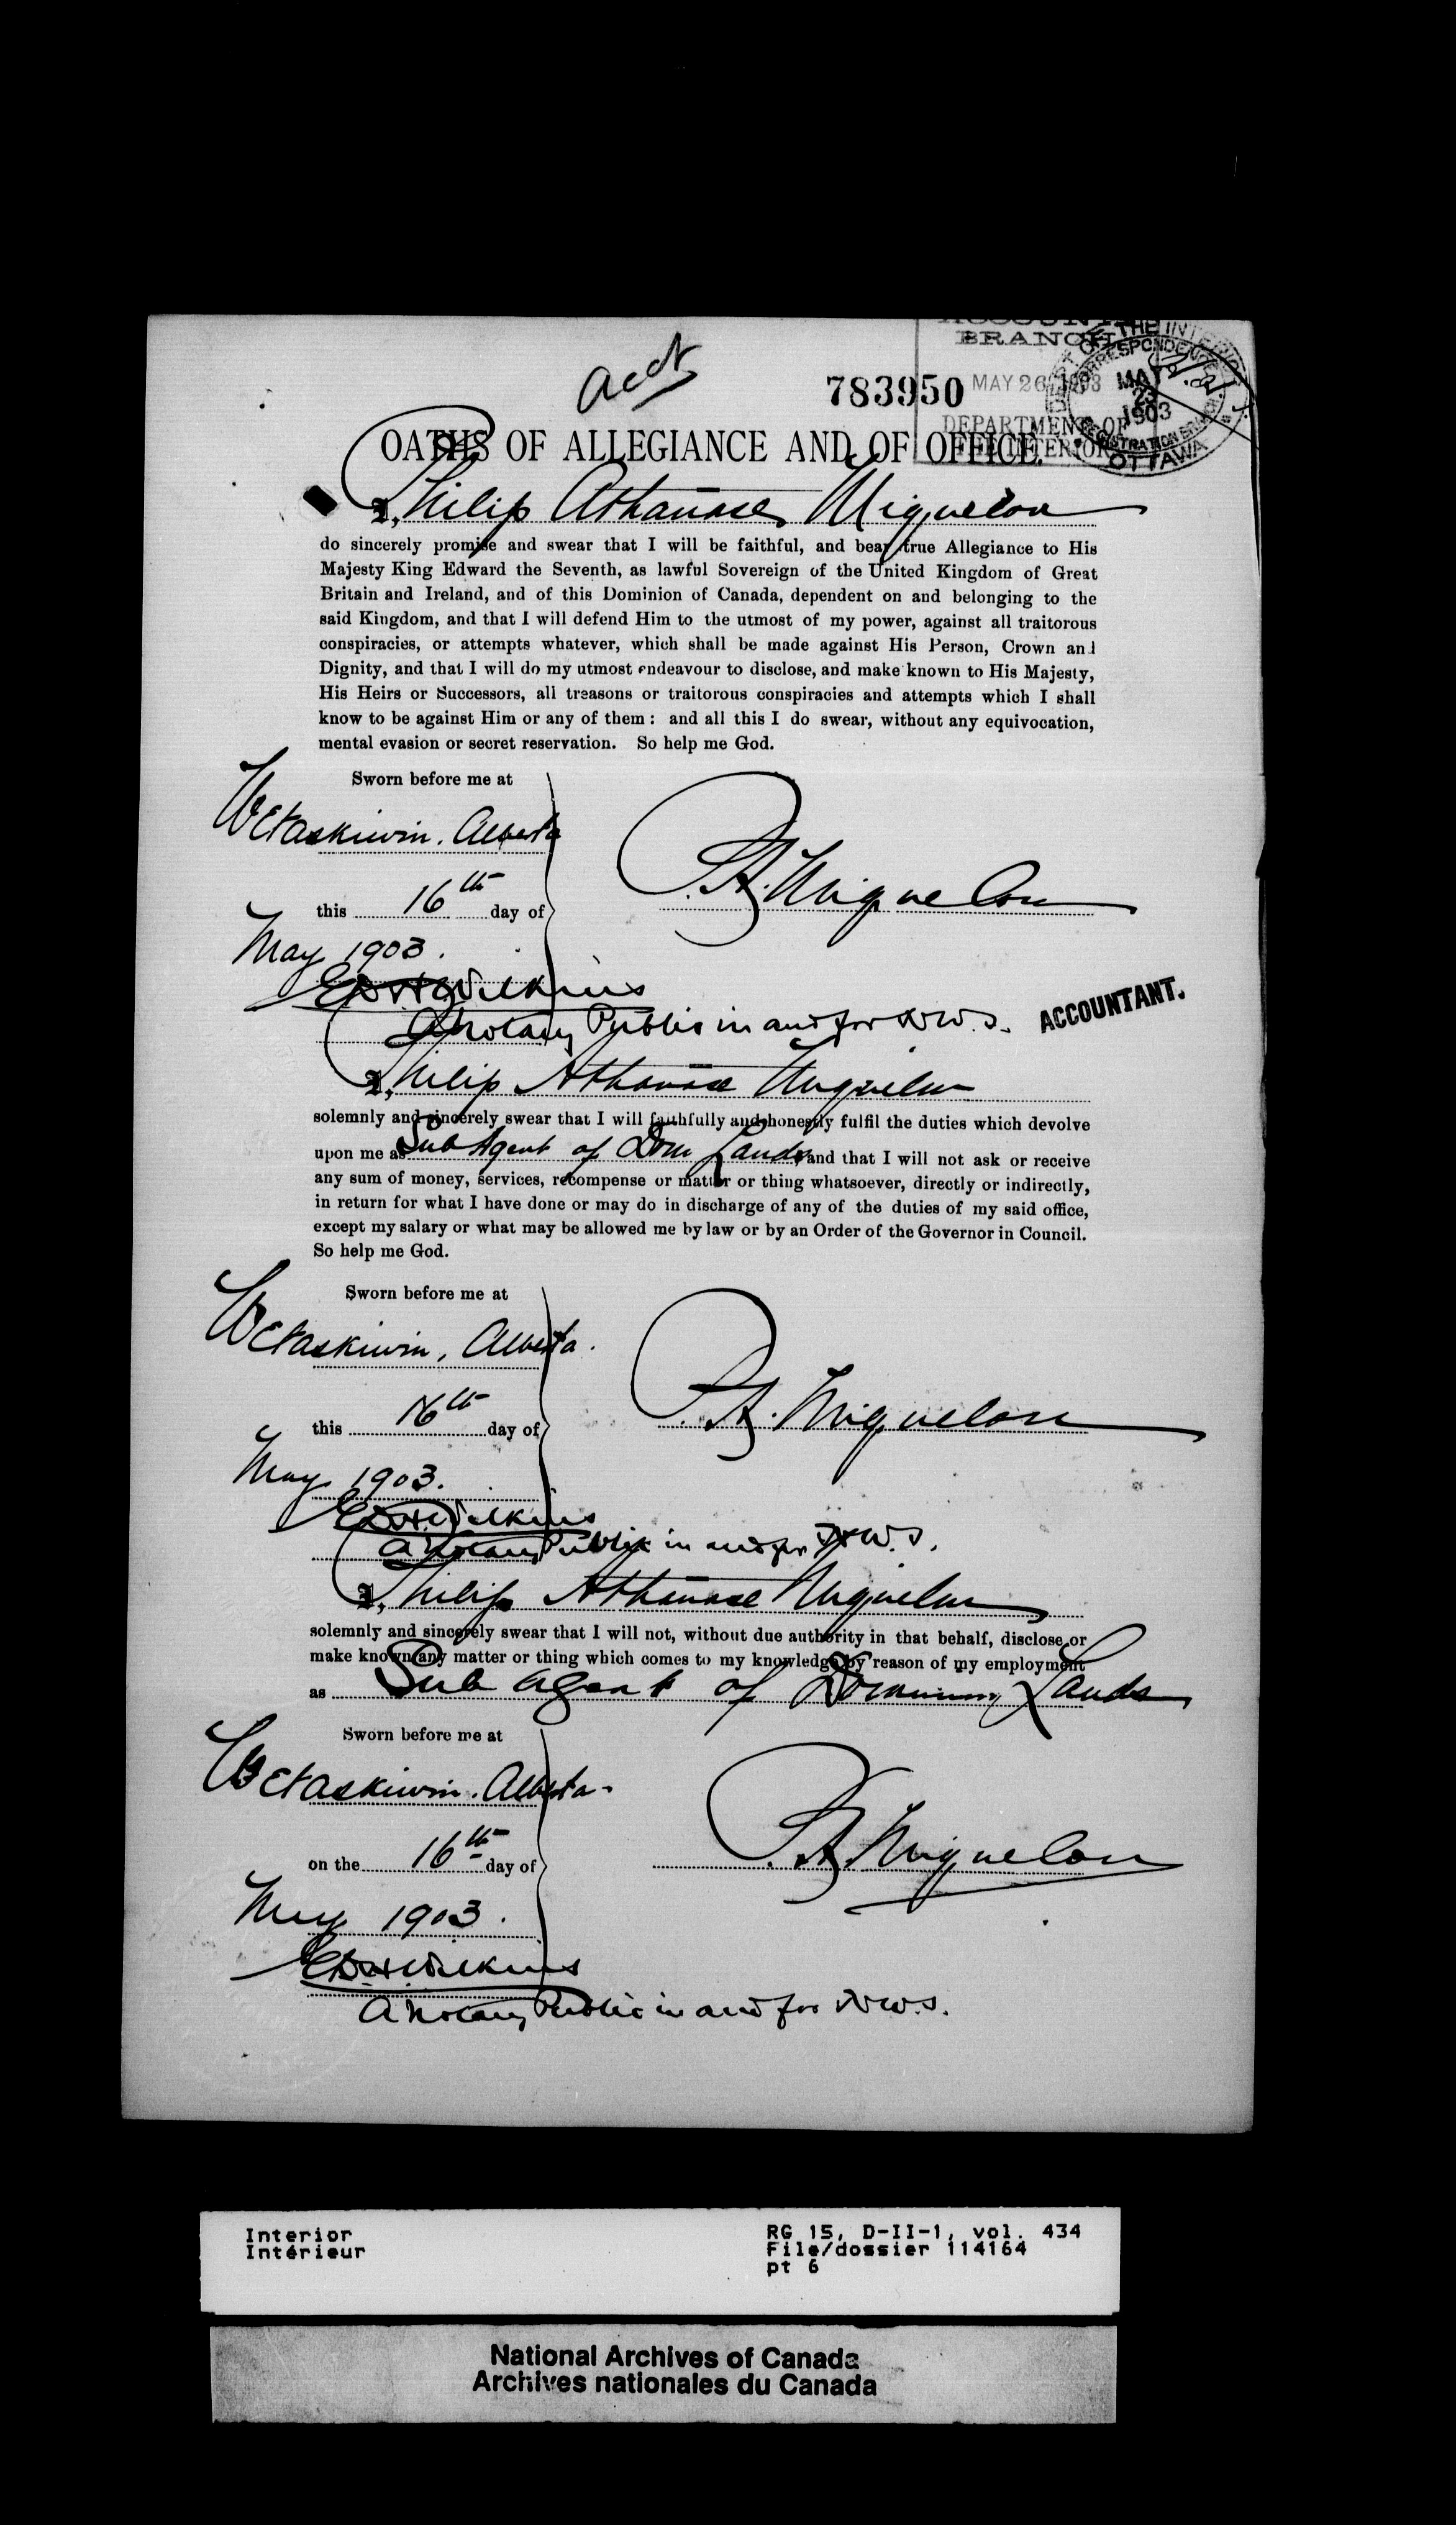 acct
BRANCH
783950 MAY 26 1903
DEPARTMENT OF
THE INTERIOR
DEPT OF THE INTERIOR
CORRESPONDENCE
MAY
23
1903
REGISTRATION BRANCH
OTTAWA
OATHS OF ALLEGIANCE AND OF OFFICE.
I, Philip Athanase Miquelon
do sincerely promise and swear that I will be faithful, and bear true Allegiance to His
Majesty King Edward the Seventh, as lawful Sovereign of the United Kingdom of Great
Britain and Ireland, and of this Dominion of Canada, dependent on and belonging to the
said Kingdom, and that I will defend Him to the utmost of my power, against all traitorous
conspiracies, or attempts whatever, which shall be made against His Person, Crown and
Dignity, and that I will do my utmost endeavour to disclose, and make known to His Majesty,
His Heirs or Successors, all treasons or traitorous conspiracies and attempts which I shall
know to be against Him or any of them : and all this I do swear, without any equivocation,
mental evasion or secret reservation. So help me God.
Sworn before me at
Wetaskiwin. Alberta
this 16th day of
P.A. Miquelon
May 1903.
Wilkins
A Notary Public in and for N.W.T.
ACCOUNTANT.
I, Philip Athanase Miquelon
solemnly and sincerely swear that I will faithfully and honestly fulfil the duties which devolve
upon me as Sub Agent of Dom Lands and that I will not ask or receive
any sum of money, services, recompense or matter or thing whatsoever, directly or indirectly,
in return for what I have done or may do in discharge of any of the duties of my said office,
except my salary or what may be allowed me by law or by an Order of the Governor in Council.
So help me God.
Sworn before me at
Wetaskiwin, Alberta.
this 16th day of
P.A. Miquelon
May 1903.
Wilkins
A Notary Public in and for N.W.T.
I, Philip Athanase Miquelon
solemnly and sincerely swear that I will not, without due authority in that behalf, disclose or
make known any matter or thing which comes to my knowledge by reason of my employment
as Sub Agent of Dominion Lands
Sworn before me at
Wetaskiwin. Alberta.
on the 16th day of
P.A. Miquelon
May 1903.
Wilkins
A Notary Public in and for N.W.T.
Interior
Intérieur
RG 15, D-II-1, vol. 434
File/dossier 114164
pt 6
National Archives of Canada
Archives nationales du Canada